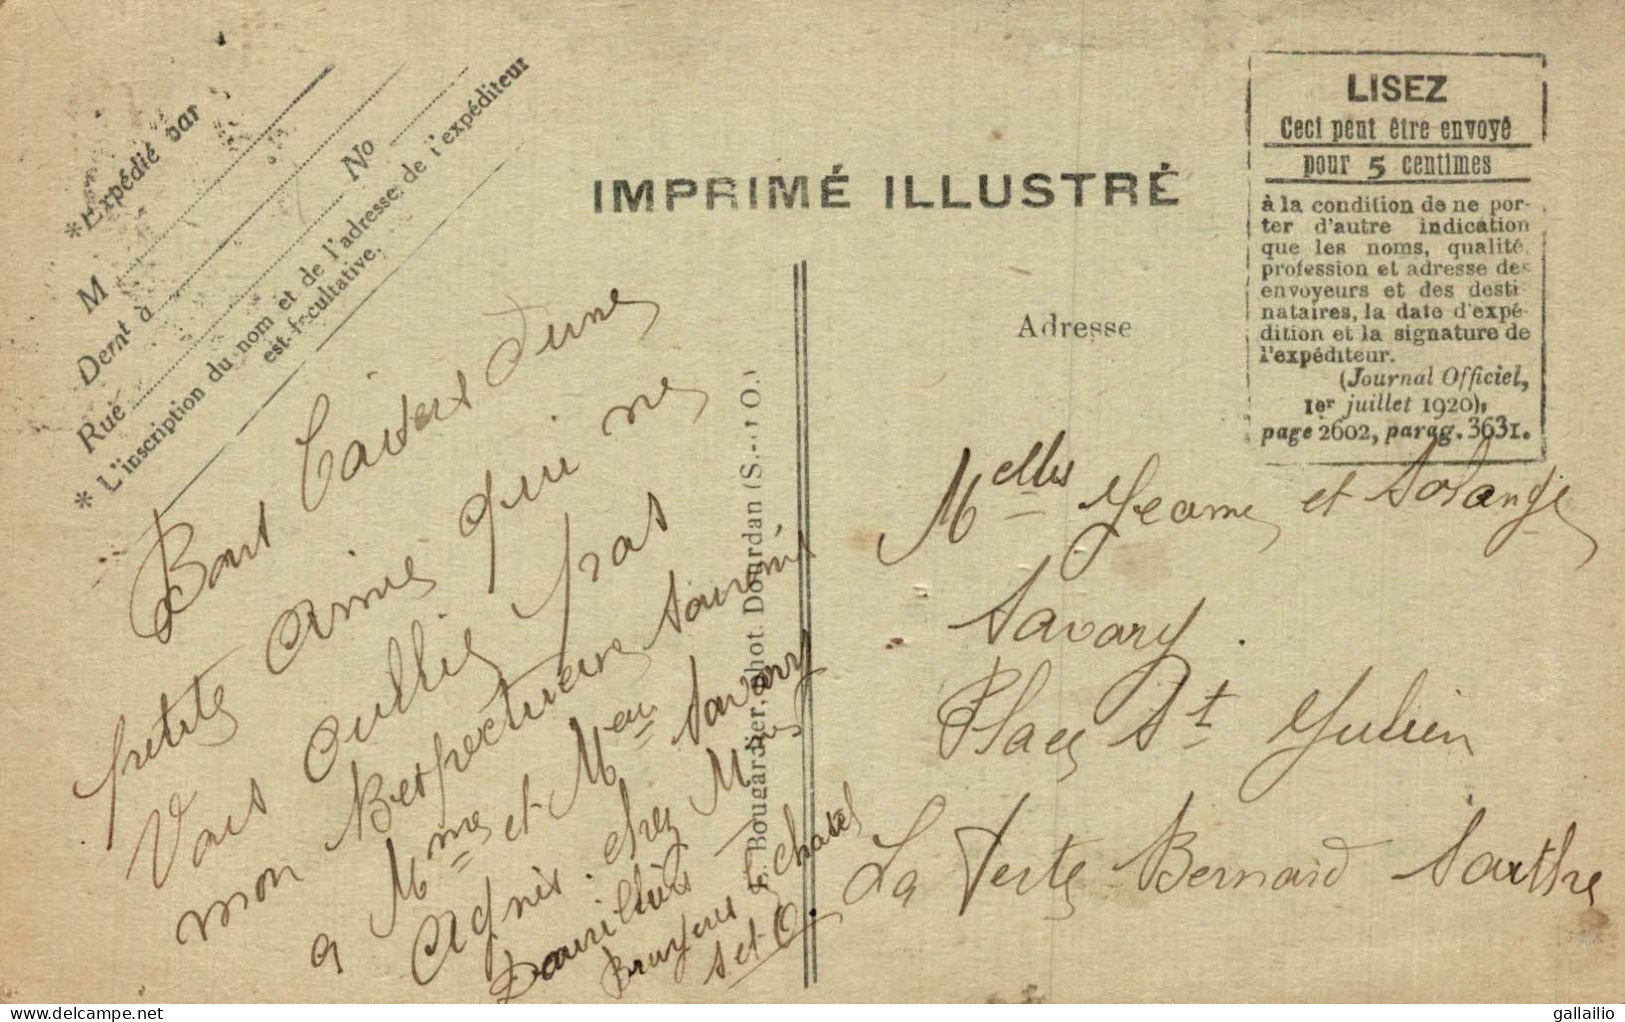 *Expédié par
M
Demt à N°
Rue
* L'inscription du nom et de l'adresse de l'expéditeur
est facultative.
IMPRIMÉ ILLUSTRÉ
LISEZ
Ceci peut être envoyé
pour 5 centimes
à la condition de ne por-
ter d'autre indication
que les noms, qualité,
profession et adresse des
envoyeurs et des desti-
nataires, la date d'expé-
dition et la signature de
l'expéditeur.
(Journal Officiel,
1er juillet 1920),
page 2602, parag. 3631.
Adresse
Bougardier, phot. Dourdan (S.-&-O.)
Bons Baisers d'une
petite amie qui ne
vous oublie pas
mon Respectueux souvenir
a Mme et Mr Savary
Agnès. chez Mme
Bruyeres le chatel
S et O.
Melles Jeanne et Solange
Savary.
Place St Julien
La Ferte Bernard Sarthe
www.delcampe.net
gallailio